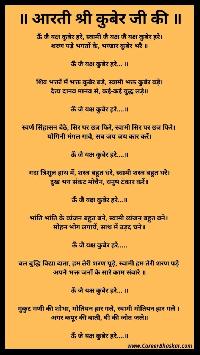 ॥ आरती श्री कुबेर जी की ॥
ऊँ जै यक्ष कुबेर हरे, स्वामी जै यक्ष जै यक्ष कुबेर हरे।
शरण पड़े भगतों के, भण्डार कुबेर भरे ॥
ऊँ जै यक्ष कुबेर हरे...॥
शिव भक्तों में भक्त कुबेर बड़े, स्वामी भक्त कुबेर बड़े।
दैत्य दानव मानव से, कई-कई युद्ध लड़े॥
ऊँ जै यक्ष कुबेर हरे...॥
स्वर्ण सिंहासन बैठे, सिर पर छत्र फिरे, स्वामी सिर पर छत्र फिरे।
योगिनी मंगल गावैं, सब जय जय कार करैं॥
ऊँ जै यक्ष कुबेर हरे...॥
गदा त्रिशूल हाथ में, शस्त्र बहुत धरे, स्वामी शस्त्र बहुत धरे।
दुख भय संकट मोचन, धनुष टंकार करें॥
ऊँ जै यक्ष कुबेर हरे...॥
भांति भांति के व्यंजन बहुत बने, स्वामी व्यंजन बहुत बने।
मोहन भोग लगावैं, साथ में उड़द चने॥
ऊँ जै यक्ष कुबेर हरे...॥
बल बुद्धि विद्या दाता, हम तेरी शरण पड़े, स्वामी हम तेरी शरण पड़े
अपने भक्त जनों के सारे काम संवारे ॥
ऊँ जै यक्ष कुबेर हरे...॥
मुकुट मणी की शोभा, मोतियन हार गले, स्वामी मोतियन हार गले ।
अगर कपूर की बाती, घी की जोत जले॥
ऊँ जै यक्ष कुबेर हरे...॥